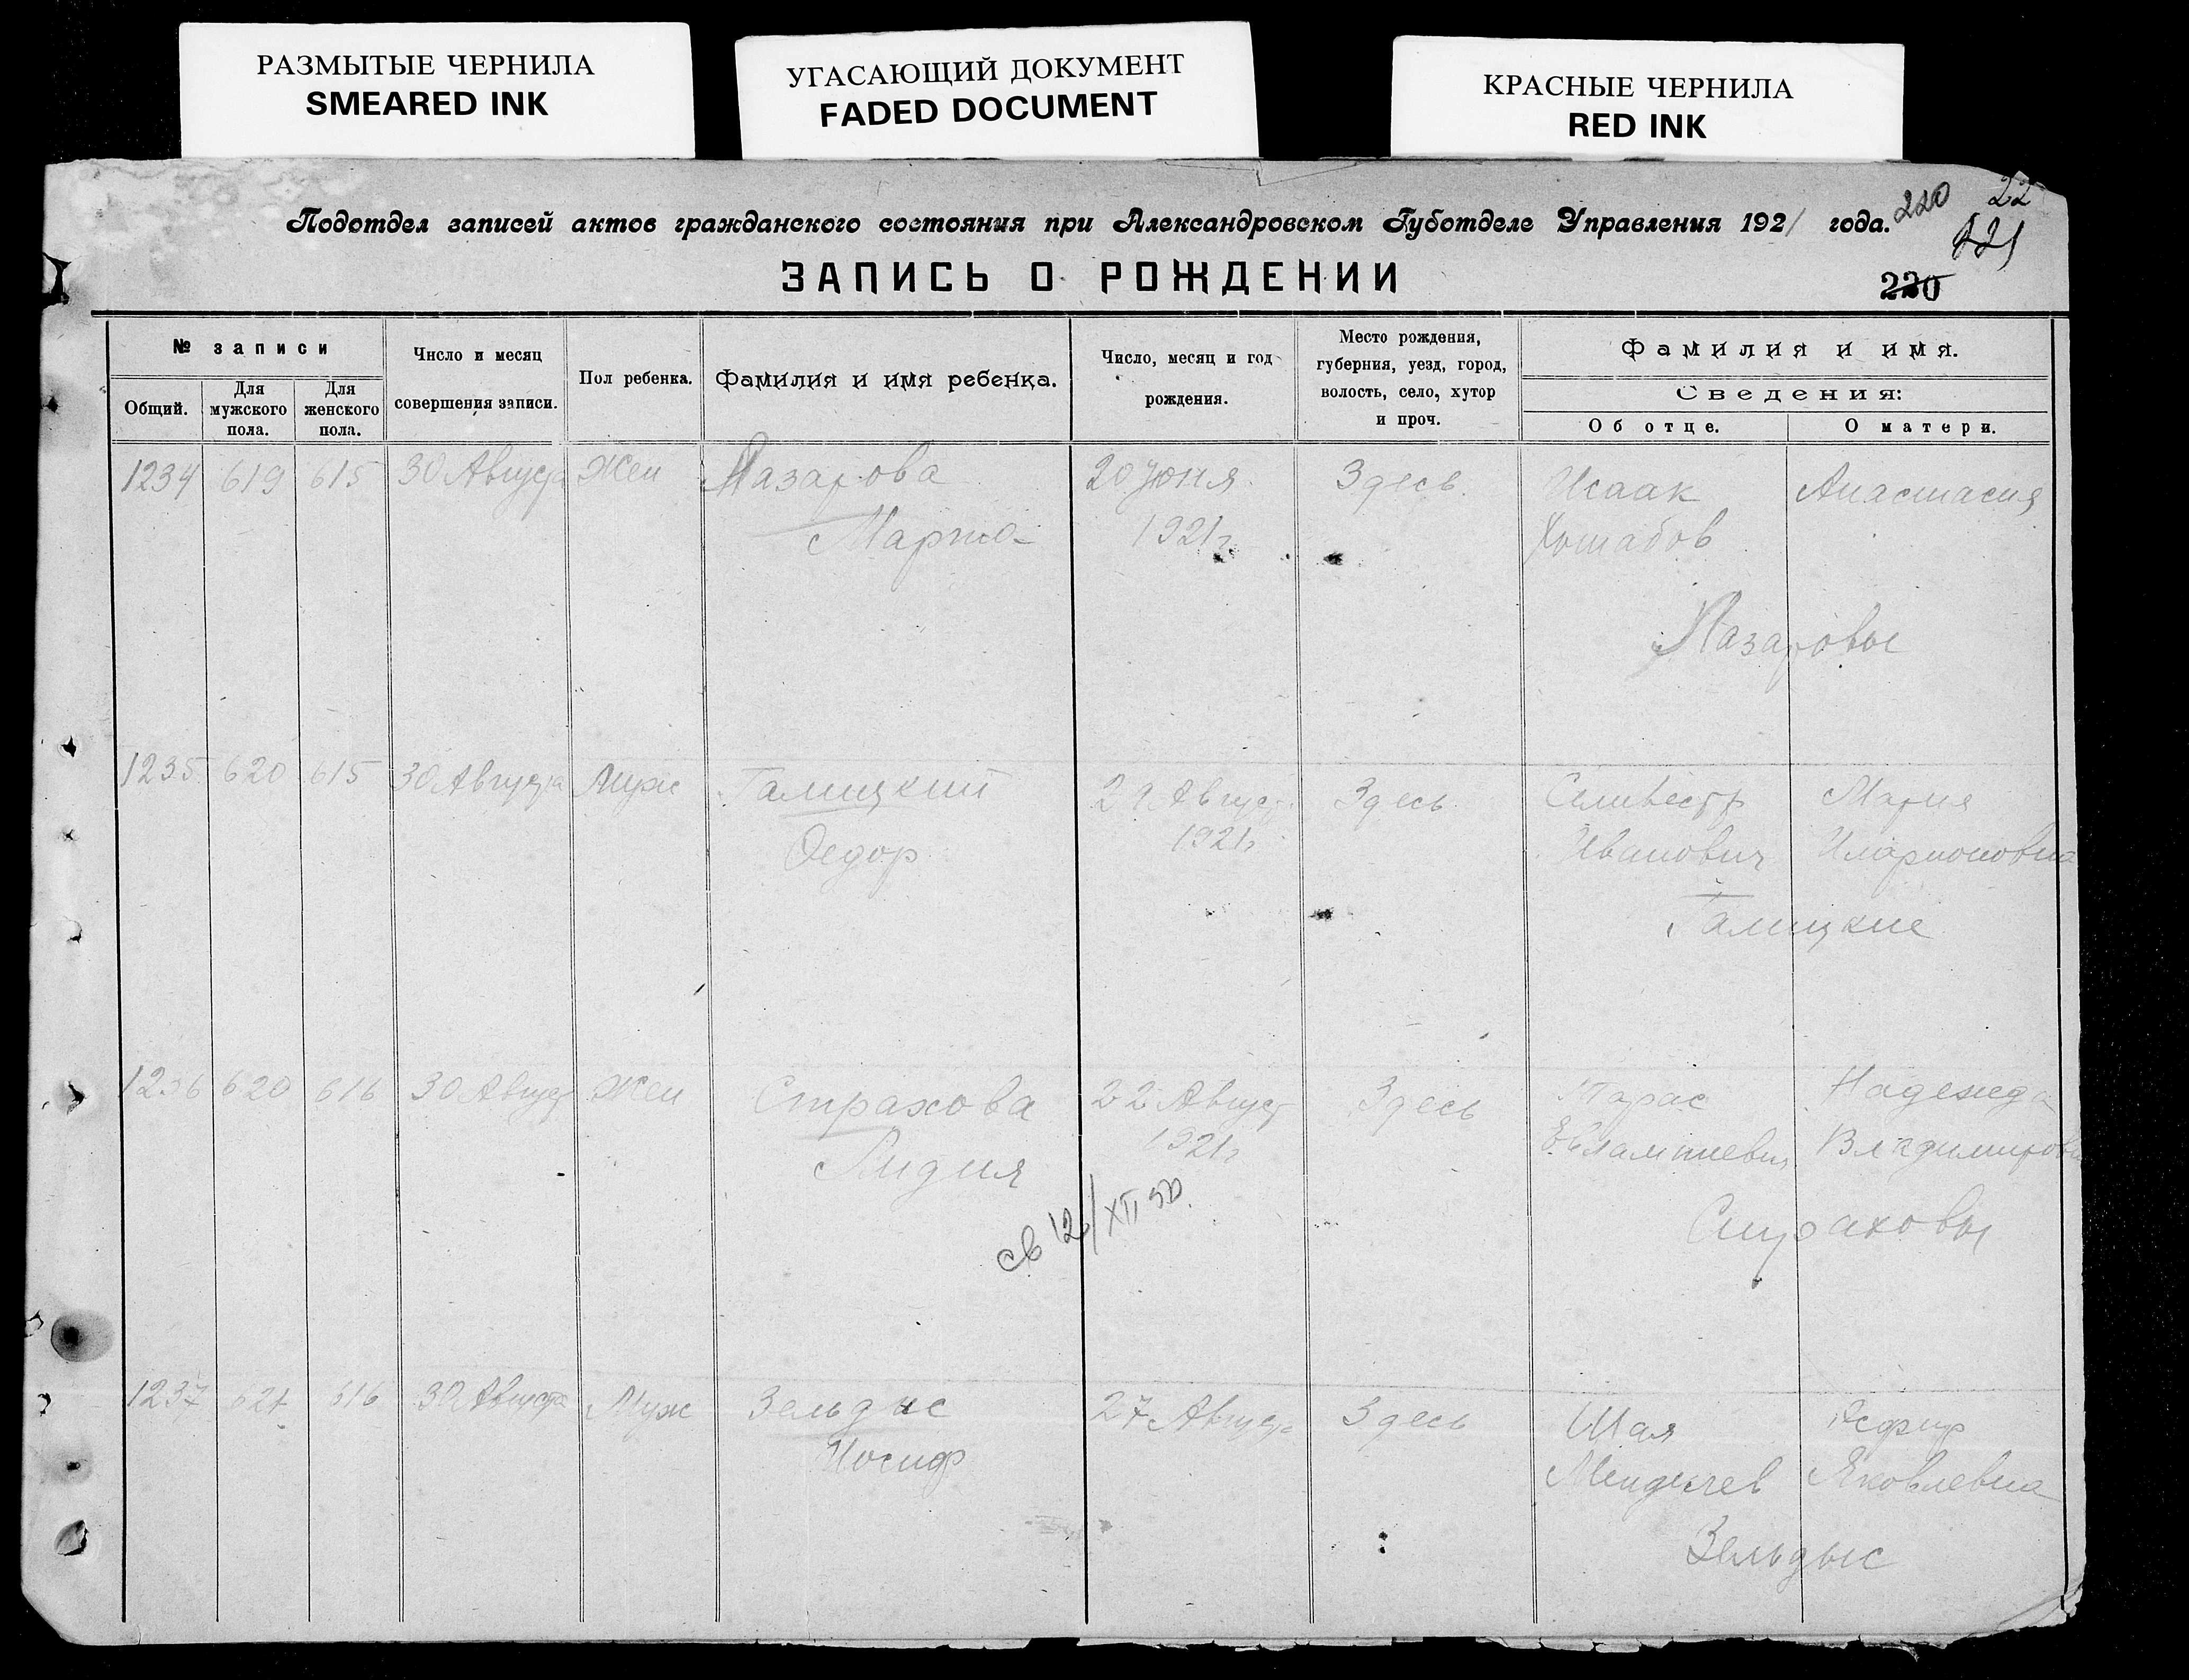 РАЗМЫТЫЕ ЧЕРНИЛА
SMEARED INK
УГАСАЮЩИЙ ДОКУМЕНТ
FADED DOCUMENT
КРАСНЫЕ ЧЕРНИЛА
RED INK
Подотдел записей актов гражданского состояния при Александровском Губотделе Управления 1921 года.
220
22
221
220
ЗАПИСЬ О РОЖДЕНИИ
№ записи
Общий.
Для мужского пола.
Для женского пола.
Число и месяц совершения записи.
Пол ребенка.
Фамилия и имя ребенка.
Число, месяц и год рождения.
Место рождения, губерния, уезд, город, волость, село, хутор и проч.
Фамилия и имя.
Сведения:
Об отце.
О матери.
1234 619 615 30 Августа Жен Лазарова 20 Июня Здесь Исаак Анастасия
Марта 1921 г.
Лазаровы
1235 620 615 30 Августа Муж Галицкий Август Здесь Селивестр Мария
Федор 1921 г Иванович Иларионовна
Галицкие
1236 620 616 30 Август Жен Страхова 22 Август Здесь Тарас Надежда
Лидия 1921 г Евлампиевич Владимировна
св 12/XII 50.
Страховы
1237 621 616 30 Августа Муж Зельдис 27 Августа Здесь Шая
Иосиф Яковлевна
Зельдыс